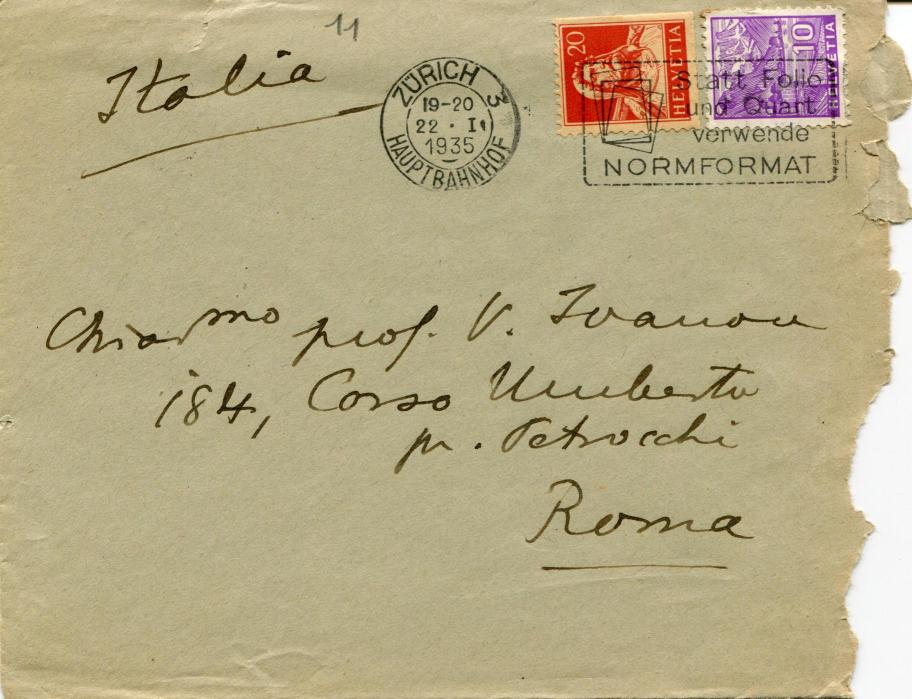 11
Italia
ZÜRICH 3
19-20
22·I·
1935
HAUPTBAHNHOF
20
HELVETIA
10
HELVETIA
Statt Folio
und Quart
verwende
NORMFORMAT
Chiar^mo prof. V. Ivanov
184, Corso Umberto
pr. Petrocchi
Roma